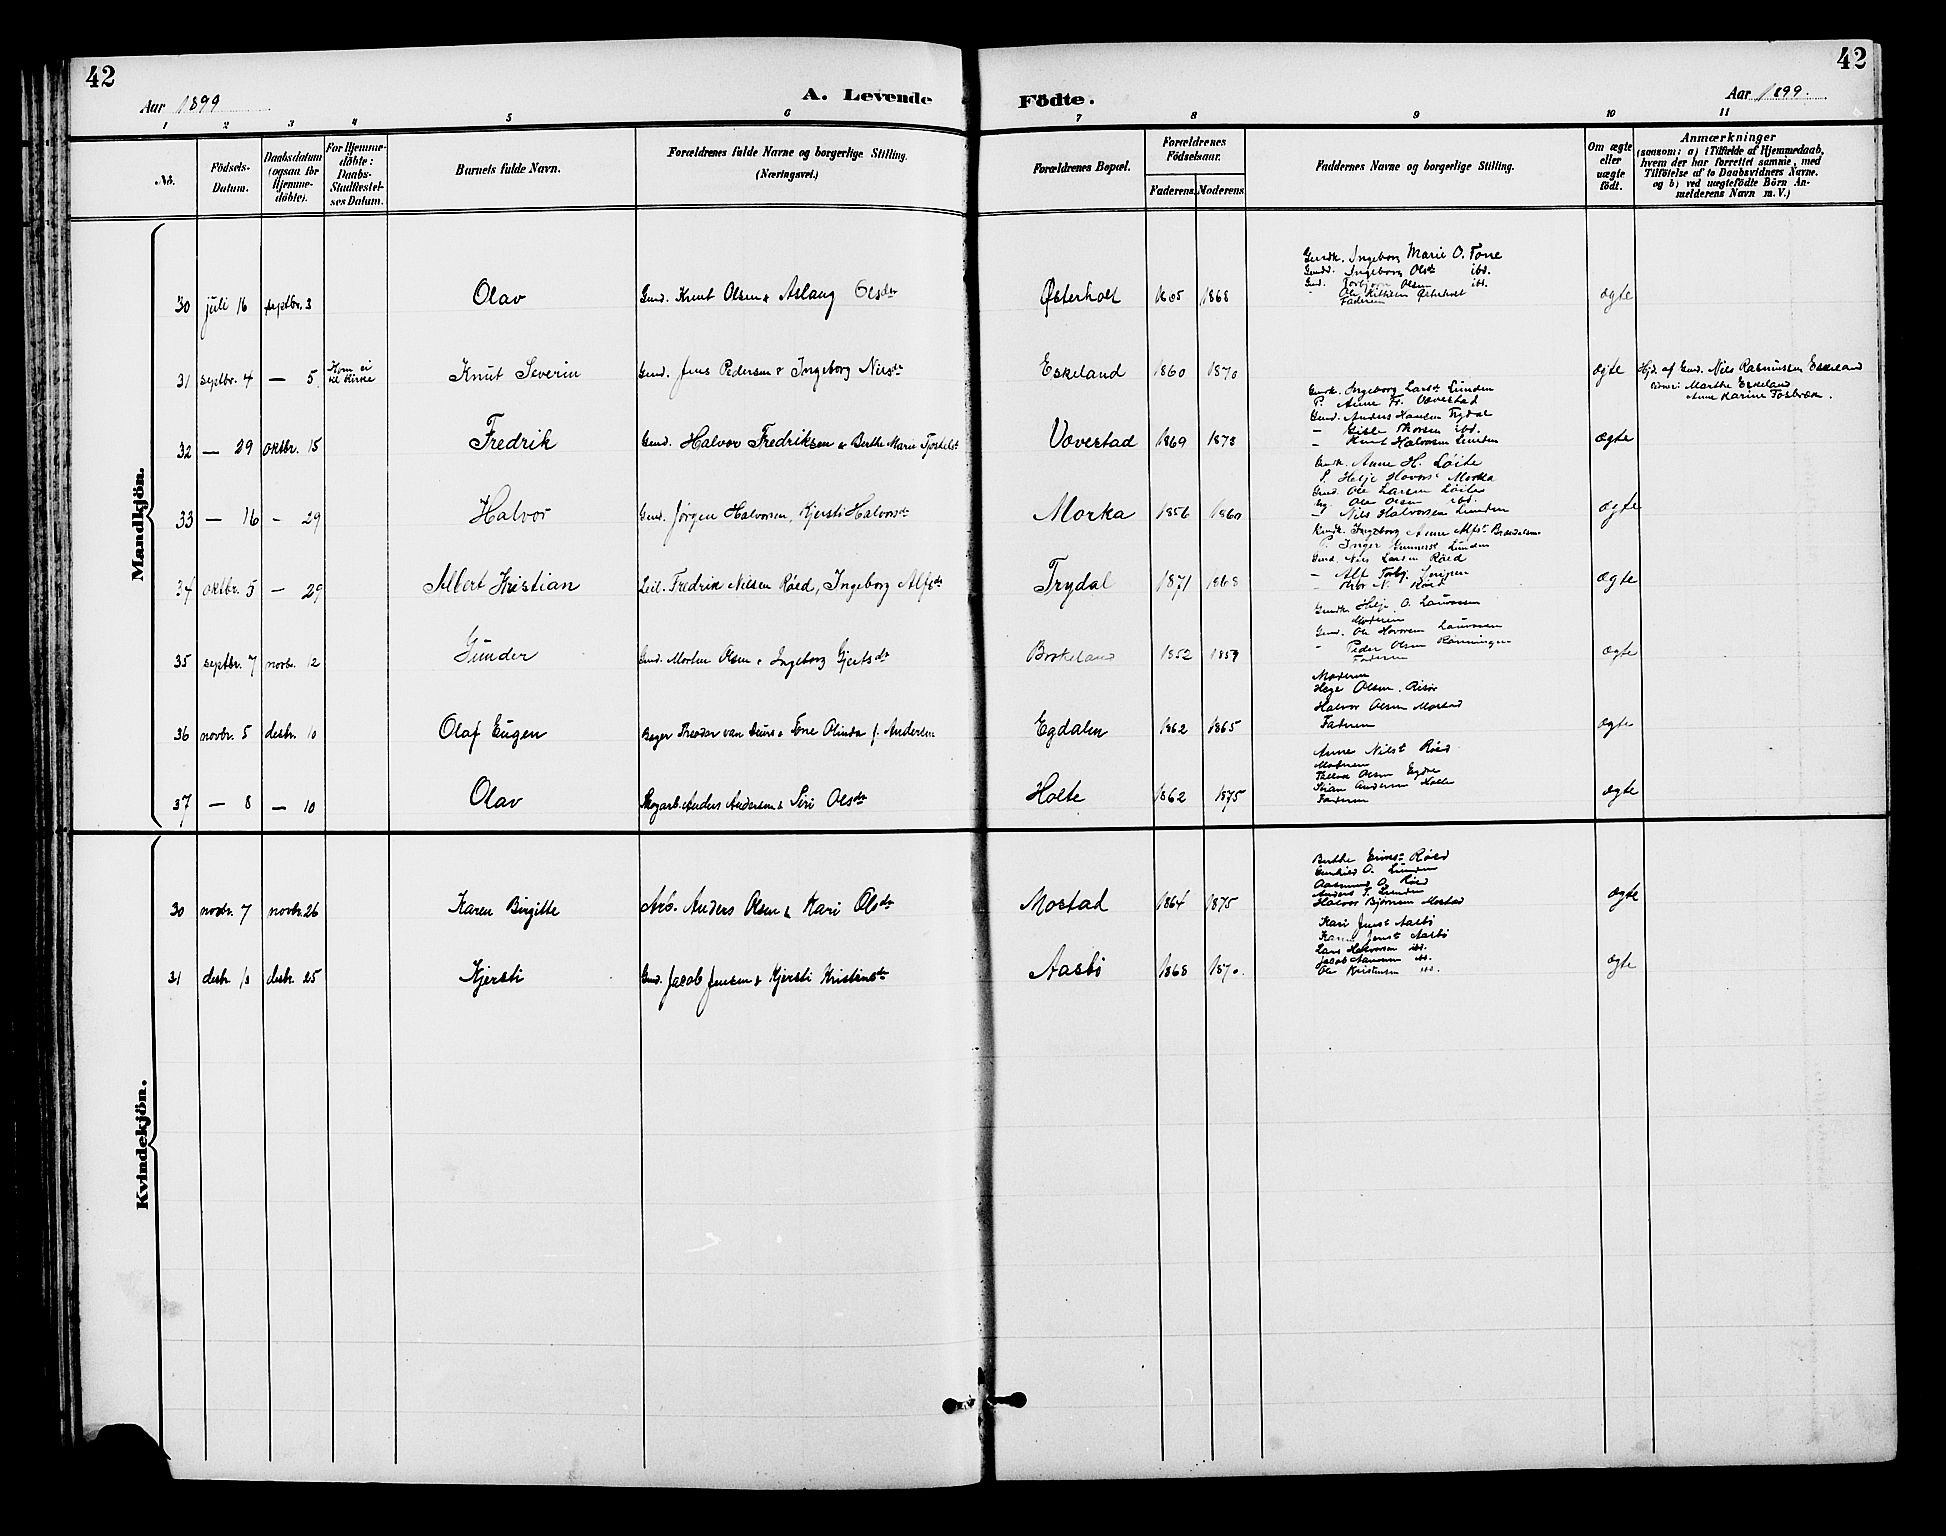 42
42
Aar 1899
A. Levende
Födte.
Aar 1899.
1 2 3 4 5 6 7 8 9 10 11
No.
Födsels-
Datum.
Daabsdatum
(ogsaa for
Hjemme-
döbte).
For Hjemme-
döbte:
Daabs-
Stadfæstel-
ses Datum.
Barnets fulde Navn.
Forældrenes fulde Navne og borgerlige Stilling.
(Næringsvei.)
Forældrenes Bopæl.
Forældrenes
Födselsaar.
Faderens. Moderens.
Faddernes Navne og borgerlige Stilling.
Om ægte
eller
uægte
födt.
Anmærkninger
(saasom: a) i Tilfælde af Hjemmedaab,
hvem der har forrettet samme, med
Tilföielse af to Daabsvidners Navne.
og b) ved uægtefödte Börn An-
melderens Navn m. V.)
Mandkjön.
Gmdk. Ingeborg Marie O. Tone
Gmd. Ingeborg Olsdr ibd.
Gmd. Torbjørn Olsen ibd.
Faderen
30 juli 16 septbr. 3 Olav Gmd. Knut Olsen & Aslaug Olsdtr Østerholt 1865 1868 ægte
31 septbr. 4 — 5 Kom ei
til Kirke
Knut Severin Gmd. Jens Pedersen & Ingeborg Nilsdr Eskeland 1860 1870 ægte Hjd. af Gmd. Nils Rasmussen Eskeland
Marthe Eskeland
Anne Karine Fosbræk.
Gmdk. Ingeborg Larsdr Lunden
P. Anne Fr. Vovestad
Gmd. Anders Hansen Trydal
— Gisle Thorsen ibd.
— Knut Halvorsen Lunden
32 — 29 oktbr. 15 Fredrik Gmd. Halvor Fredriksen & Berthe Marie Vovestad 1869 1873 ægte
Gmdk. Anne H. Løite
P. Helje Hovors Morka
Gmd. Ole Larsen Løite
Ole Olsen ibd.
— Nils Halvorsen Lunden
33 — 16 — 29 Halvor Gmd. Jørgen Halvorsen, Kjersti Halvorsdr Morka 1856 1860 ægte
Gmdk. Ingeborg Anne Alfsdr
P. Inger Gunnersd Lunden
Gmd. Nils Larsen Røed
— Alf
— Thor N. Røed
34 oktbr. 5 — 29 Albert Kristian Leil. Fredrik Nilsen Røed, Ingeborg Alfsdr Trydal 1871 1868 ægte
Gmdk. Helje O. Laurosen
Moderen
Gmd. Ole Hovorsen Laurosen
— Peder Olsen Rønningen
Faderen
35 septbr. 7 novbr. 12 Gunder Gmd. Morten Olsen & Ingeborg Gjertsdr Brokeland 1852 1859 ægte
Moderen
Hege Olsen, Risør
Halvor Olsen Mostad
Faderen
36 novbr. 5 desbr. 10 Olaf Eugen Bager Theodor van Deurs & Tone Olinda f. Andersen Egdalen 1862 1865 ægte
Anne Nilsdr Røed
Moderen
Olsen Egdre
Andersen Holte
Faderen
37 — 8 — 10 Olav Skogarb. Anders Andersen & Siri Olsdr Holte 1862 1875 ægte
Kvindekjön.
Berthe Røed
Gunhild O. Lunden
Aasmund O. Røed
Anders T. Lunden
Halvor Bjørnsen Mostad
30 novbr. 7 novbr. 26 Karen Birgitte Arb. Anders Olsen & Kari Olsdr Mostad 1864 1875 ægte
Kari Jensdr Aasbø
Karen Jensdr Aasbø
Lars Halvorsen ibd.
Jacob Aanonsen ibd.
Ole Kristensen ibd.
31 desbr. 13 desbr. 25 Kjersti Gmd. Jacob Jensen & Kjersti Kristensdr Aasbø 1868 1870. ægte